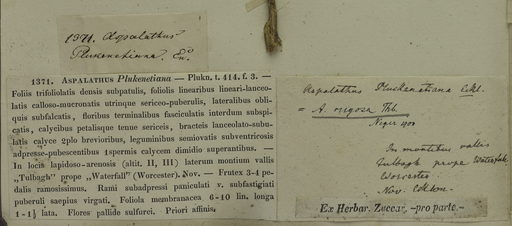 1371. Aspalathus
Plukenetiana. En.
1371. ASPALATHUS Plukenetiana — Plukn. t. 414. f. 3. —
Foliis trifoliolatis densis subpatulis, foliolis linearibus lineari-lanceo-
latis calloso-mucronatis utrinque sericeo-puberulis, lateralibus obli-
quis subfalcatis, floribus terminalibus fasciculatis interdum subspi-
catis, calycibus petalisque tenue sericeis, bracteis lanceolato-subu-
latis calyce 2plo brevioribus, leguminibus semiovatis subventricosis
adpresse-pubescentibus 1spermis calycem dimidio superantibus. —
In locis lapidoso-arenosis (altit. II, III) laterum montium vallis
„Tulbagh" prope „Waterfall" (Worcester). Nov. — Frutex 3-4 pe-
dalis ramosissimus. Rami subadpressi paniculati v. subfastigiati
puberuli saepius virgati. Foliola membranacea 6-10 lin. longa
1-1½ lata. Flores pallide sulfurei. Priori affinis.
Aspalathus Plukenetiana Eckl.
= A. rugosa Thb.
In montibus vallis
Tulbagh prope Waterfall
Worcester
Nov. Ecklon.
Ex Herbar. Zuccar. -pro parte-